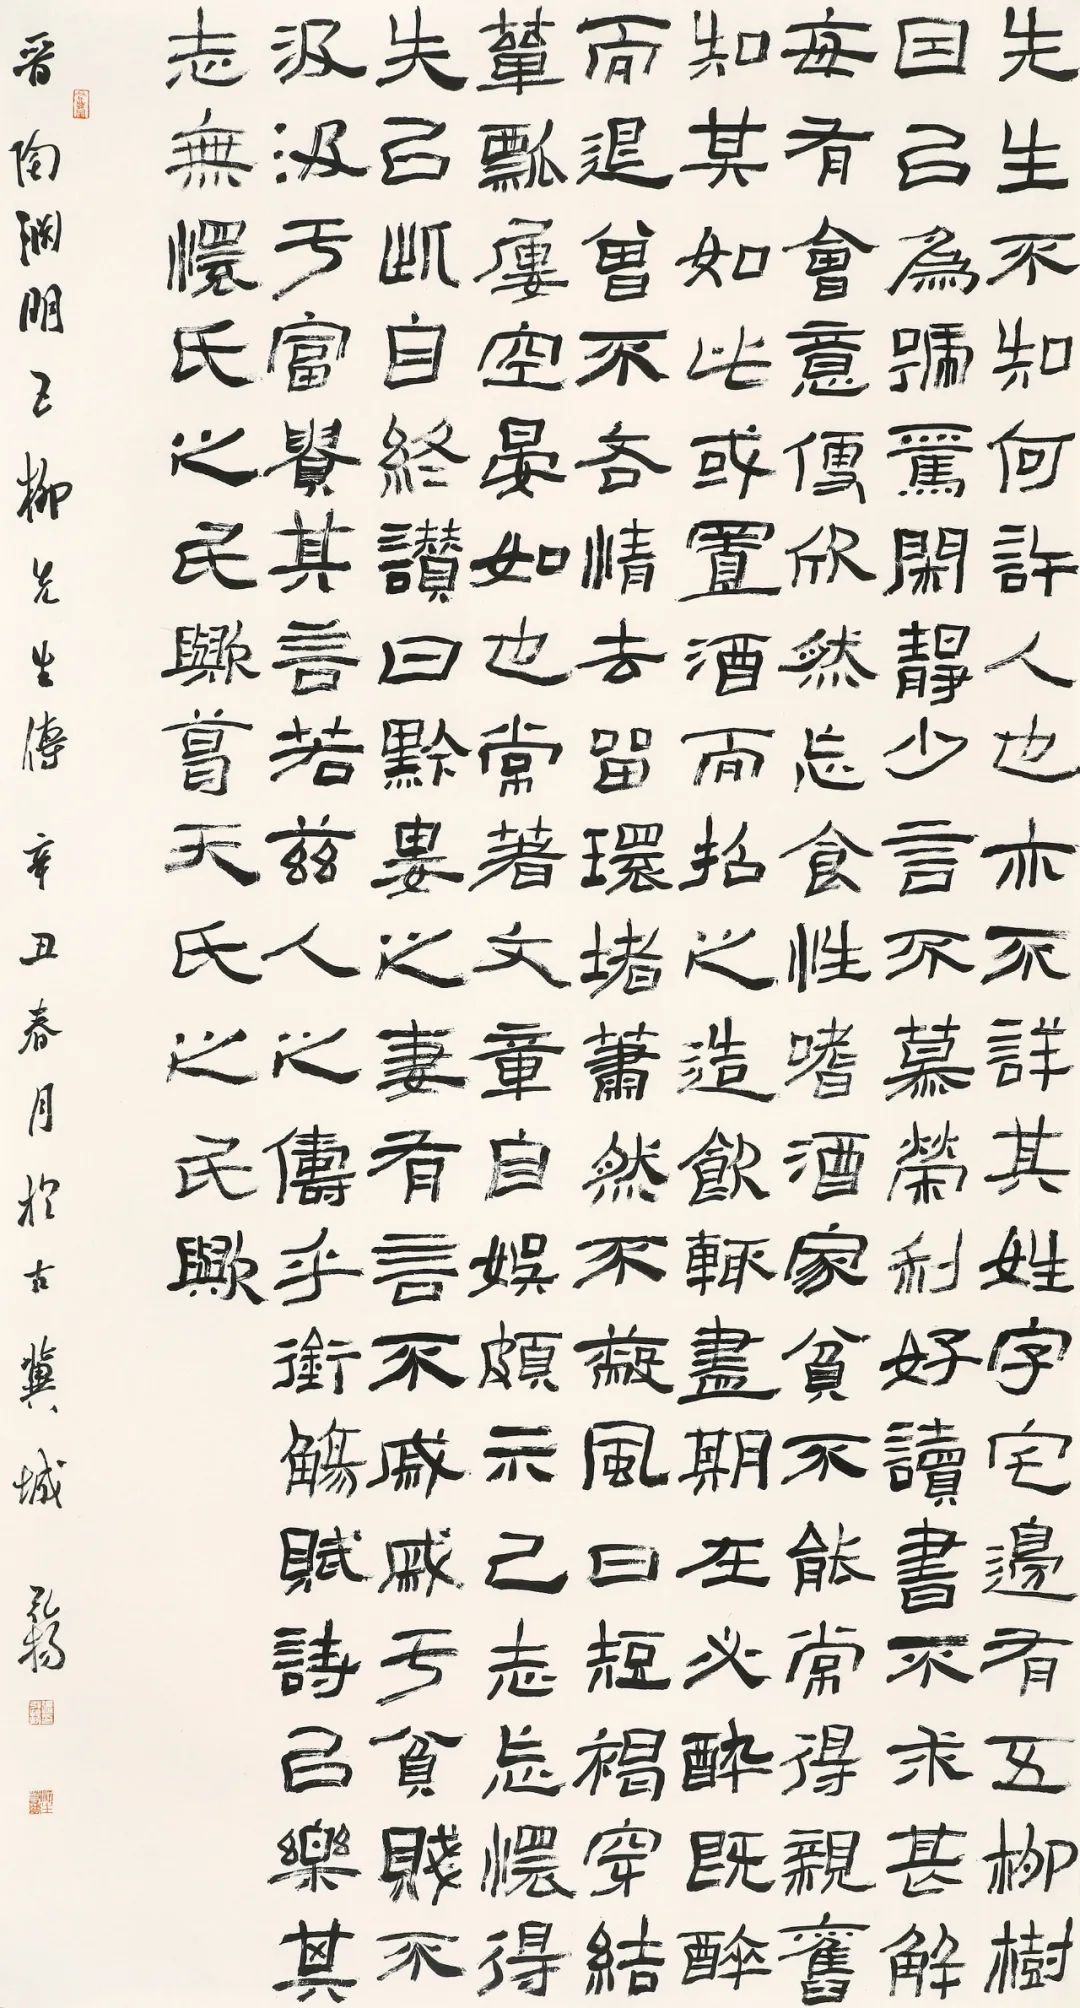 先生不知何許人也亦不詳其姓字宅邊有五柳樹
因以為號焉閑靜少言不慕榮利好讀書不求甚解
每有會意便欣然忘食性嗜酒家貧不能常得親舊
知其如此或置酒而招之造飲輒盡期在必醉既醉
而退曾不吝情去留環堵蕭然不蔽風日短褐穿結
簞瓢屢空晏如也常著文章自娛頗示己志忘懷得
失以此自終讚曰黔婁之妻有言不戚戚于貧賤不
汲汲于富貴其言若茲人之儔乎銜觴賦詩以樂其
志無懷氏之民歟葛天氏之民歟
晉陶淵明五柳先生傳辛丑春月於古冀城